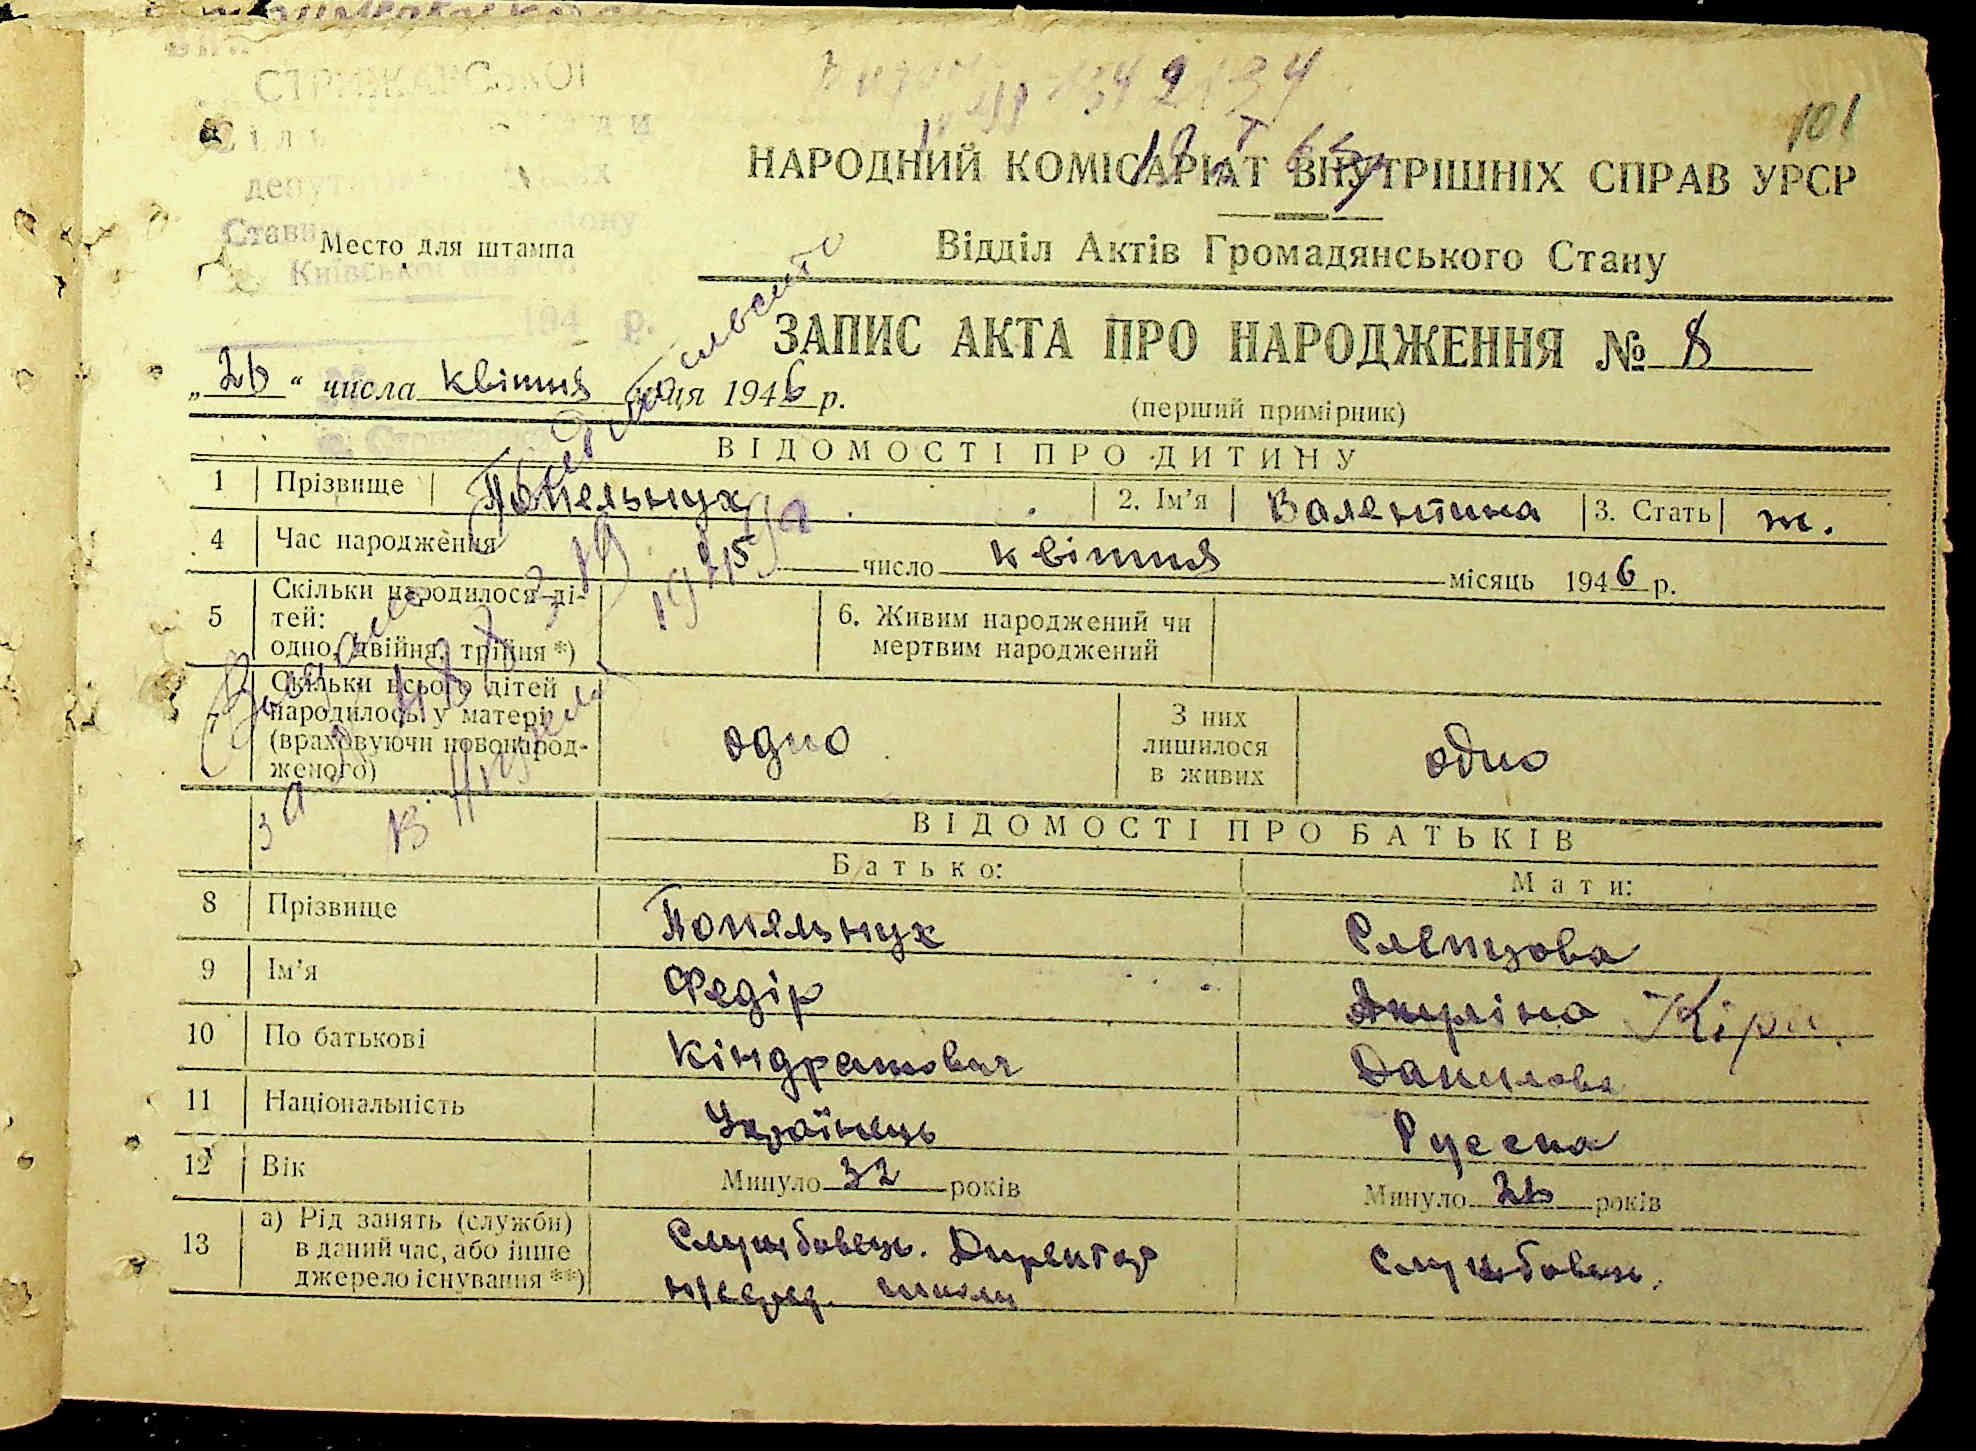 101
СТРИЖАВСЬКОЇ
Київської
194 р.
Место для штампа
НАРОДНИЙ КОМІСАРІАТ ВНУТРІШНІХ СПРАВ УРСР
Відділ Актів Громадянського Стану
ЗАПИС АКТА ПРО НАРОДЖЕННЯ № 8
„26“ числа квітня м-ця 1946 р.
(перший примірник)
ВІДОМОСТІ ПРО ДИТИНУ
1 Прізвище Попельнух 2. Ім'я Валентина 3. Стать ж.
4 Час народження 15 число квітня місяць 1946 р.
5 Скільки народилося ді-
тей:
одно, двійня, трійня *)
6. Живим народжений чи
мертвим народжений
7 Скільки всього дітей
народилось у матері
(враховуючи новонарод-
женого)
одно
З них
лишилося
в живих
одно
ВІДОМОСТІ ПРО БАТЬКІВ
Батько: Мати:
8 Прізвище Попельнух Слепцова
9 Ім'я Федір Акуліна Кіра
10 По батькові Кіндратович Данилова
11 Національність Українець Русска
12 Вік Минуло 32 років Минуло 26 років
13 а) Рід занять (служби)
в даний час, або інше
джерело існування **)
Службовець. Директор
школи
Службовець.